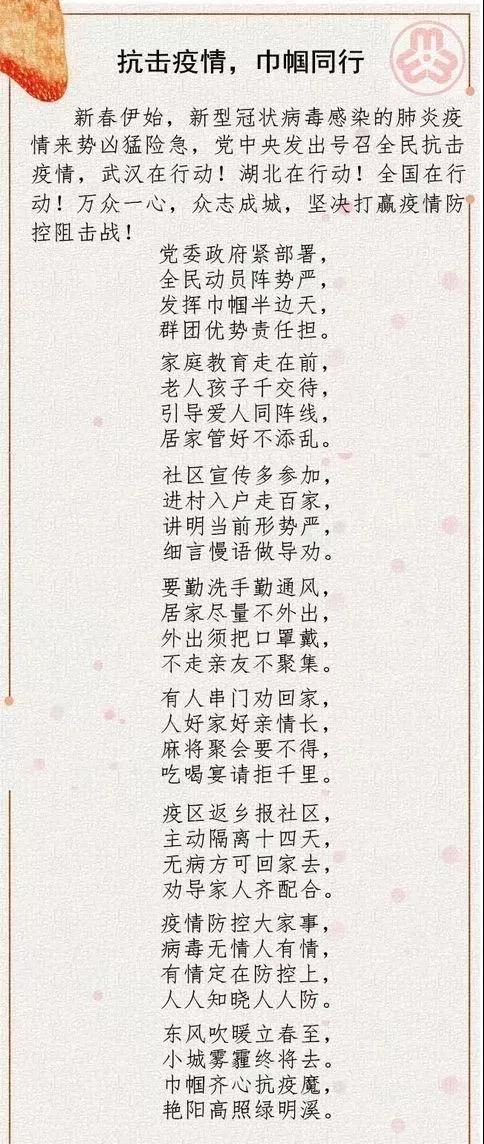 抗击疫情，巾帼同行
新春伊始，新型冠状病毒感染的肺炎疫
情来势凶猛险急，党中央发出号召全民抗击
疫情，武汉在行动！湖北在行动！全国在行
动！万众一心，众志成城，坚决打赢疫情防
控阻击战！
党委政府紧部署，
全民动员阵势严，
发挥巾帼半边天，
群团优势责任担。
家庭教育走在前，
老人孩子千交待，
引导爱人同阵线，
居家管好不添乱。
社区宣传多参加，
进村入户走百家，
讲明当前形势严，
细言慢语做导劝。
要勤洗手勤通风，
居家尽量不外出，
外出须把口罩戴，
不走亲友不聚集。
有人串门劝回家，
人好家好亲情长，
麻将聚会要不得，
吃喝宴请拒千里。
疫区返乡报社区，
主动隔离十四天，
无病方可回家去，
劝导家人齐配合。
疫情防控大家事，
病毒无情人有情，
有情定在防控上，
人人知晓人人防。
东风吹暖立春至，
小城雾霾终将去。
巾帼齐心抗疫魔，
艳阳高照绿明溪。